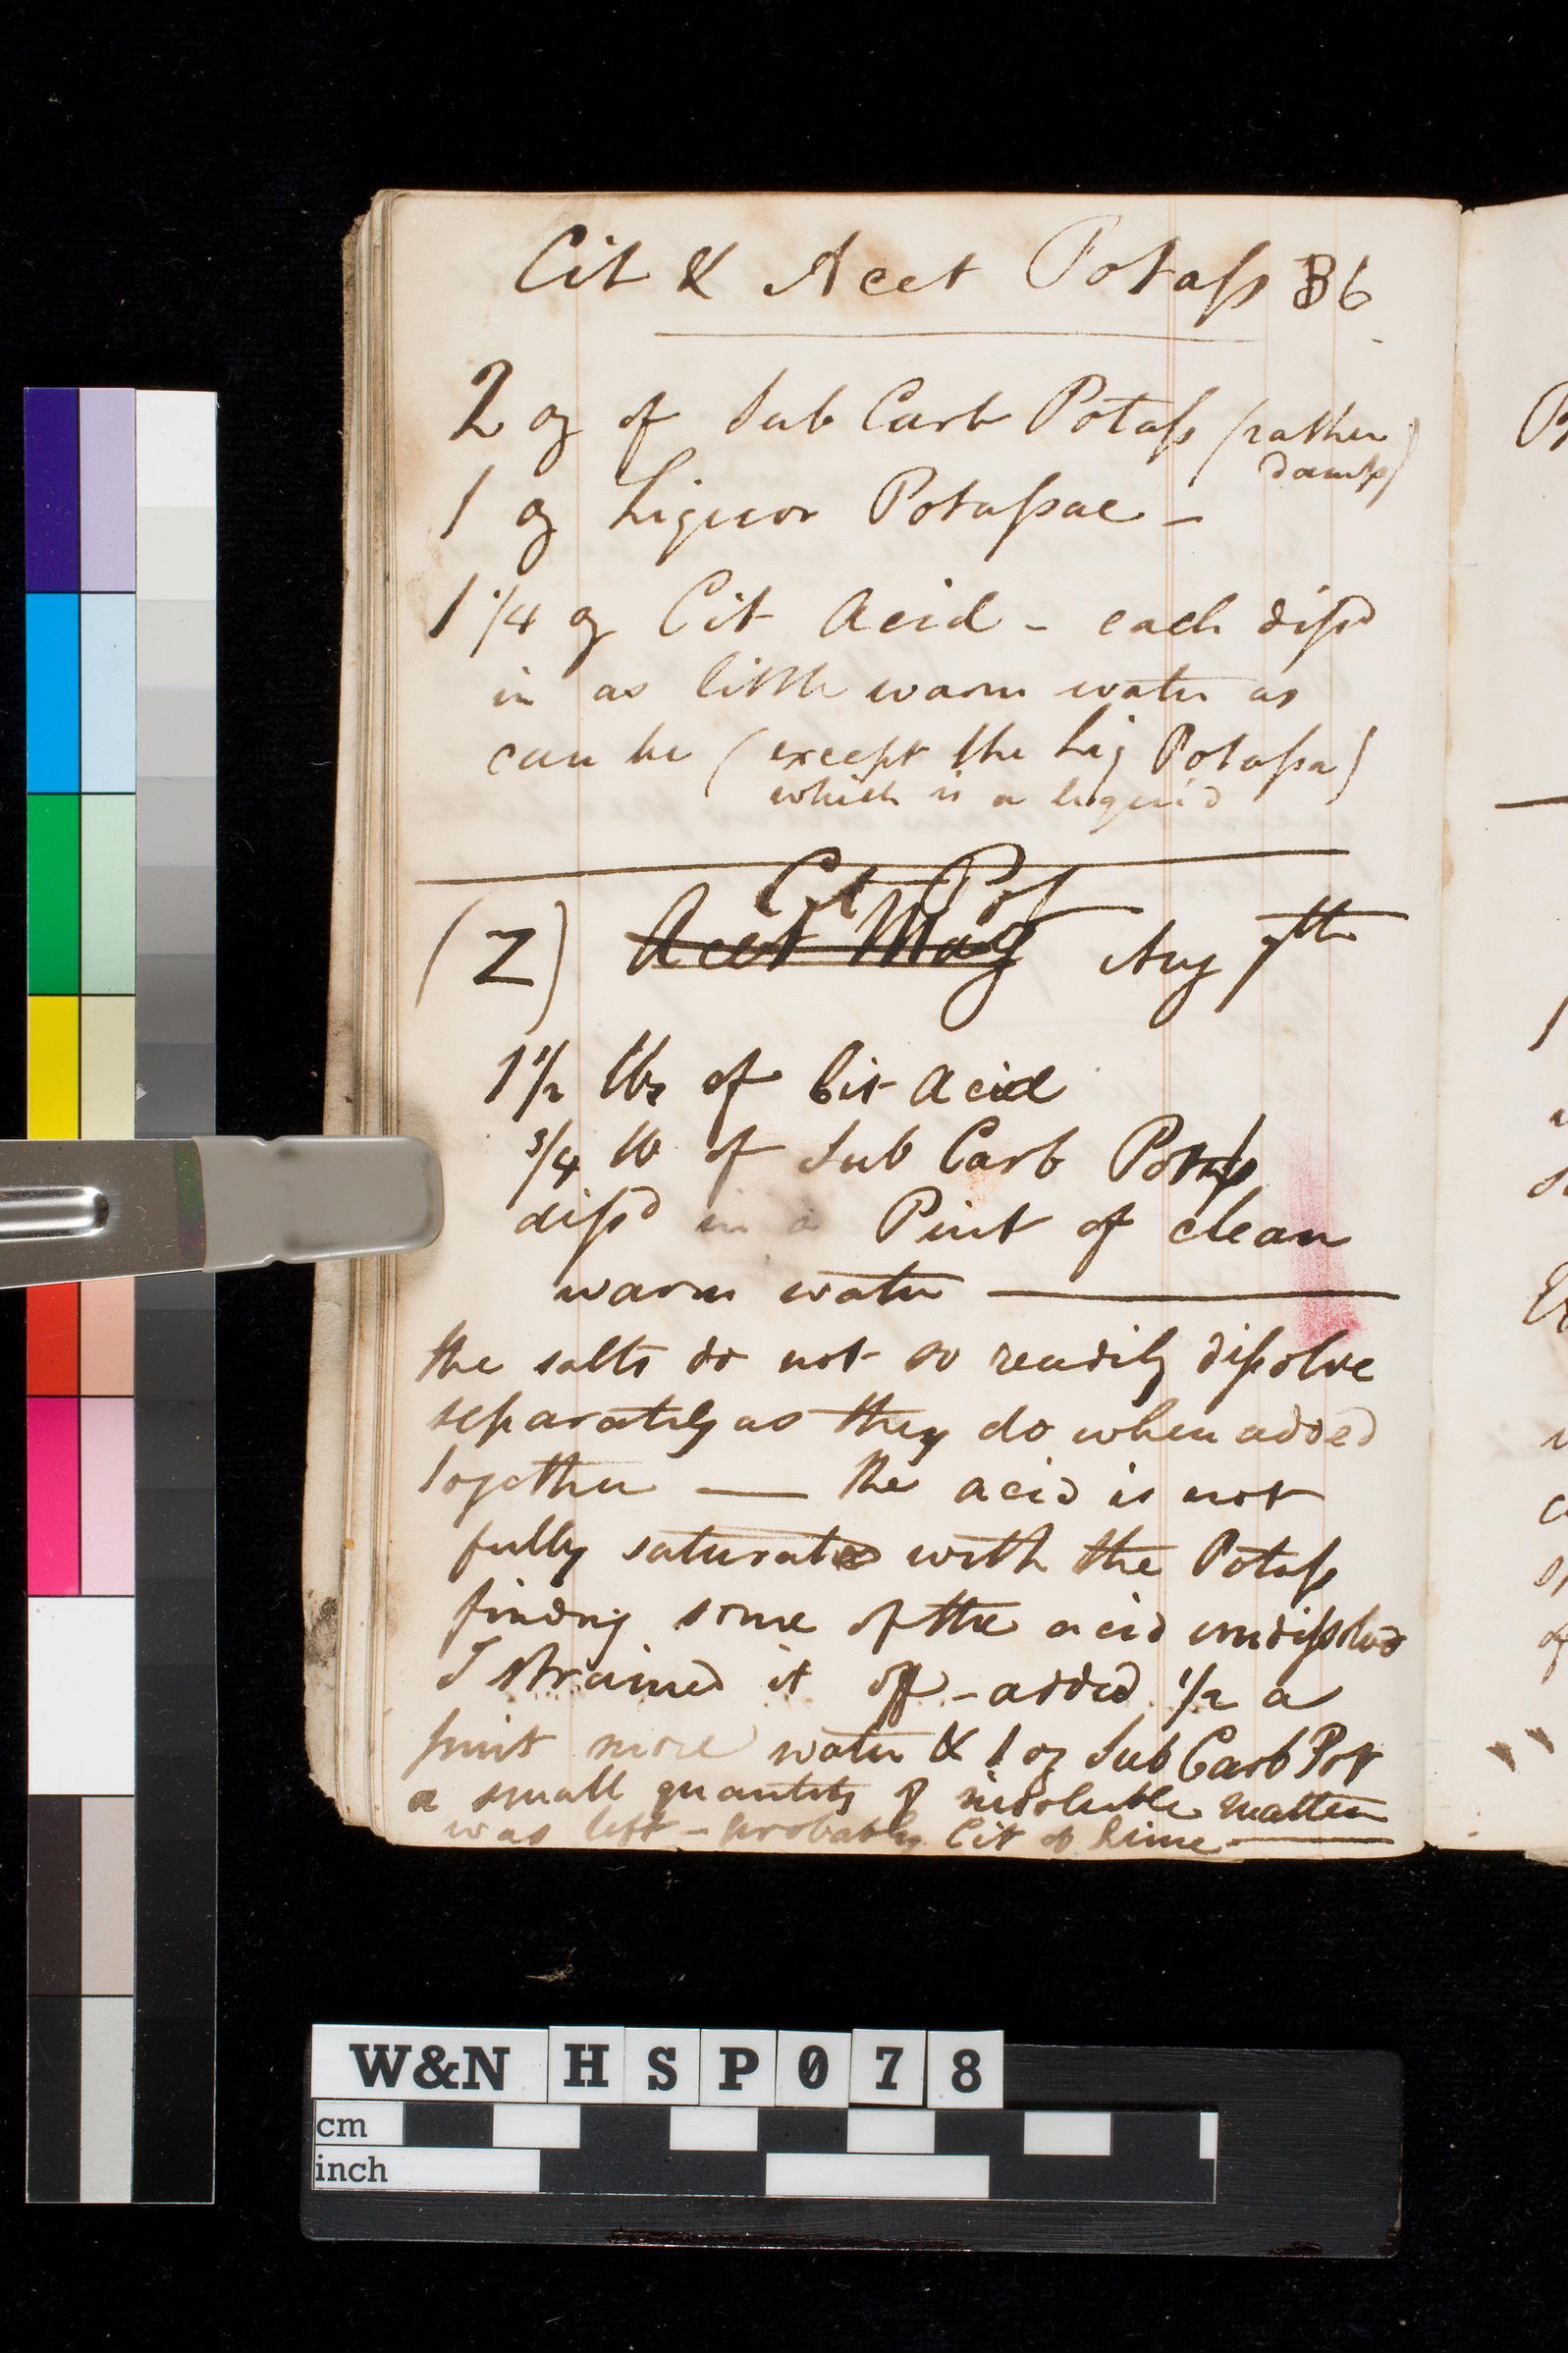 Cit & Acet Potass B6
2 oz of Sub Carb Potass (rather
damp)
1 oz Liquor Potassae -
1 1/4 oz Cit Acid - each dissd
in as little warm water as
can be (except the Liq Potassa)
which is a liquid
Cit Pot
(Z) Acet Mag Aug 7th
1 1/2 lbs of Cit Acid
3/4 lb of Sub Carb Potass
dissd in a Pint of clean
warm water
the salts do not so readily dissolve
separately as they do when added
together — the acid is not
fully saturated with the Potass
finding some of the acid undissolved
I strained it off - added 1/2 a
pint more water & 1 oz Sub Carb Pot
a small quantity of insoluble matter
was left - probably Cit of Lime
W&N HSP078
cm
inch